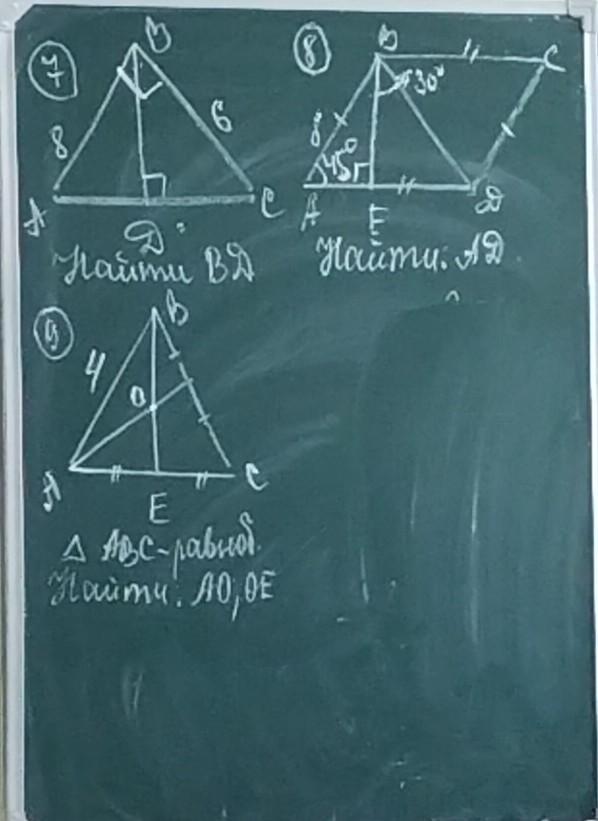 7
B
8
6
A
D
C
Найти BD
8
B
C
30°
8
45°
A
E
D
Найти: AD
9
B
4
O
A
E
C
△ ABC-равноб.
Найти: AO, OE